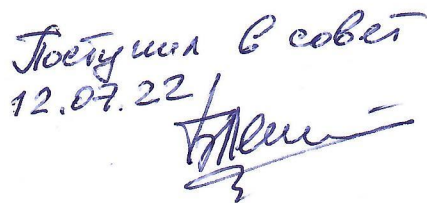 Поступил в совет
12.07.22